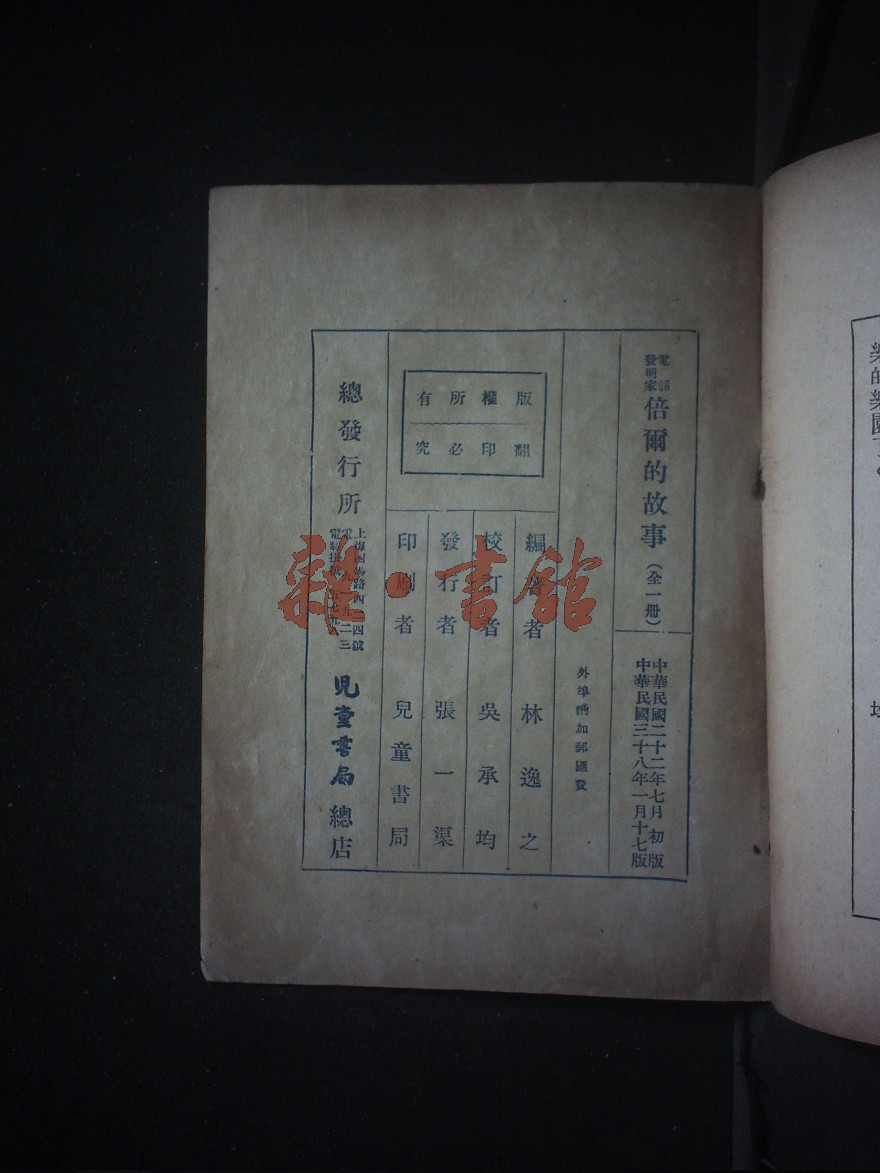 電話
發明家
倍爾的故事（全一册）
中華民國二十二年七月初版
中華民國三十八年一月十七版
外埠酌加郵匯費
版權所有
翻印必究
編著者 林逸之
校訂者 吳承均
發行者 張一渠
印刷者 兒童書局
總發行所
上海四馬路四二四號
兒童書局總店
雜·書館
樂的樂園了